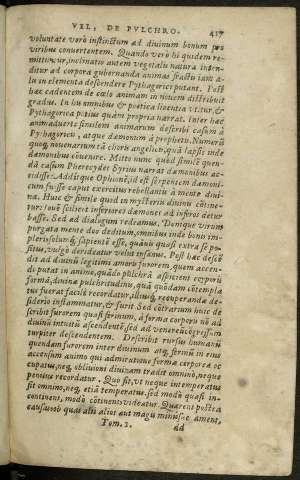 VEL, DE PVLCHRO. 437
voluntate verò instinctum ad diuinum bonum pro
viribus conuertentem. Quando verò hi quidem re-
mittūtur, inclinatio autem vegetalis natura inten-
ditur ad corpora gubernanda animas fractis iam a-
lis in elementa descendere Pythagorici putant. Post
hæc cadentem de cœlo animam in nouem distribuit
gradus. In his omnibus & poetica licentia vtitur, &
Pythagorica potius quàm propria narrat. Inter hæc
animaduerte similem animarum describi casum à
Pythagoricis, atque dæmonum à prophetis. Numerū
quoq; nouenarium tā choris angelicis, quā lapsis inde
dæmonibus cōuenire. Mitto nunc quòd similē quen-
dā casum Pherecydes Syrius narrat dæmonibus ac-
cidisse: Additque Ophionē, id est serpentem dæmoni-
cum fuisse caput exercitus rebellantis à mente diui-
na. Huic & simile quid in mysteriis diuinis cōtine-
tur: Ioue scilicet inferiores dæmones ad inferos detur
basse. Sed ad dialogum redeamus. Denique virum
purgata mente deo deditum, omnibus inde bonis im-
plerisolumq; sapientē esse, quāuis quasi extra se po-
situs, vulgo derideatur velut insanus. Post hæc descē
dit ad diuinū legitimi amoris furorem, quem accen-
di putat in anima, quādo pulchrā aspiciens corporis
formā, diuinæ pulchritudinis, quā quondam cōtempla
tus fuerat facilè recordatur, illiusq; recuperandæ de-
siderio inflammatur, & furit Sed cōtrarium huic de
scribit furorem quasi ferinum, à forma corporis nō ad
diuinū intuitū ascendentē, sed ad venereū cōgressum
turpiter descendentem. Describit rursus humanū
quendam furorem inter diuinum atq; ferinū in eius
accensum animo qui admiratione formæ corporeæ oc
cupatus, neq; obliuioni diuinam tradit omnino, neque
penitus recordatur. Quo fit, vt neque intemperatus
sit omnino, neq; etiā temperatus, sed modū quasi in-
continens, modū cōtinens videatur. Quærens postea
causas ob quas alii alios aut magis minusue ament,
Tom. 2. dd